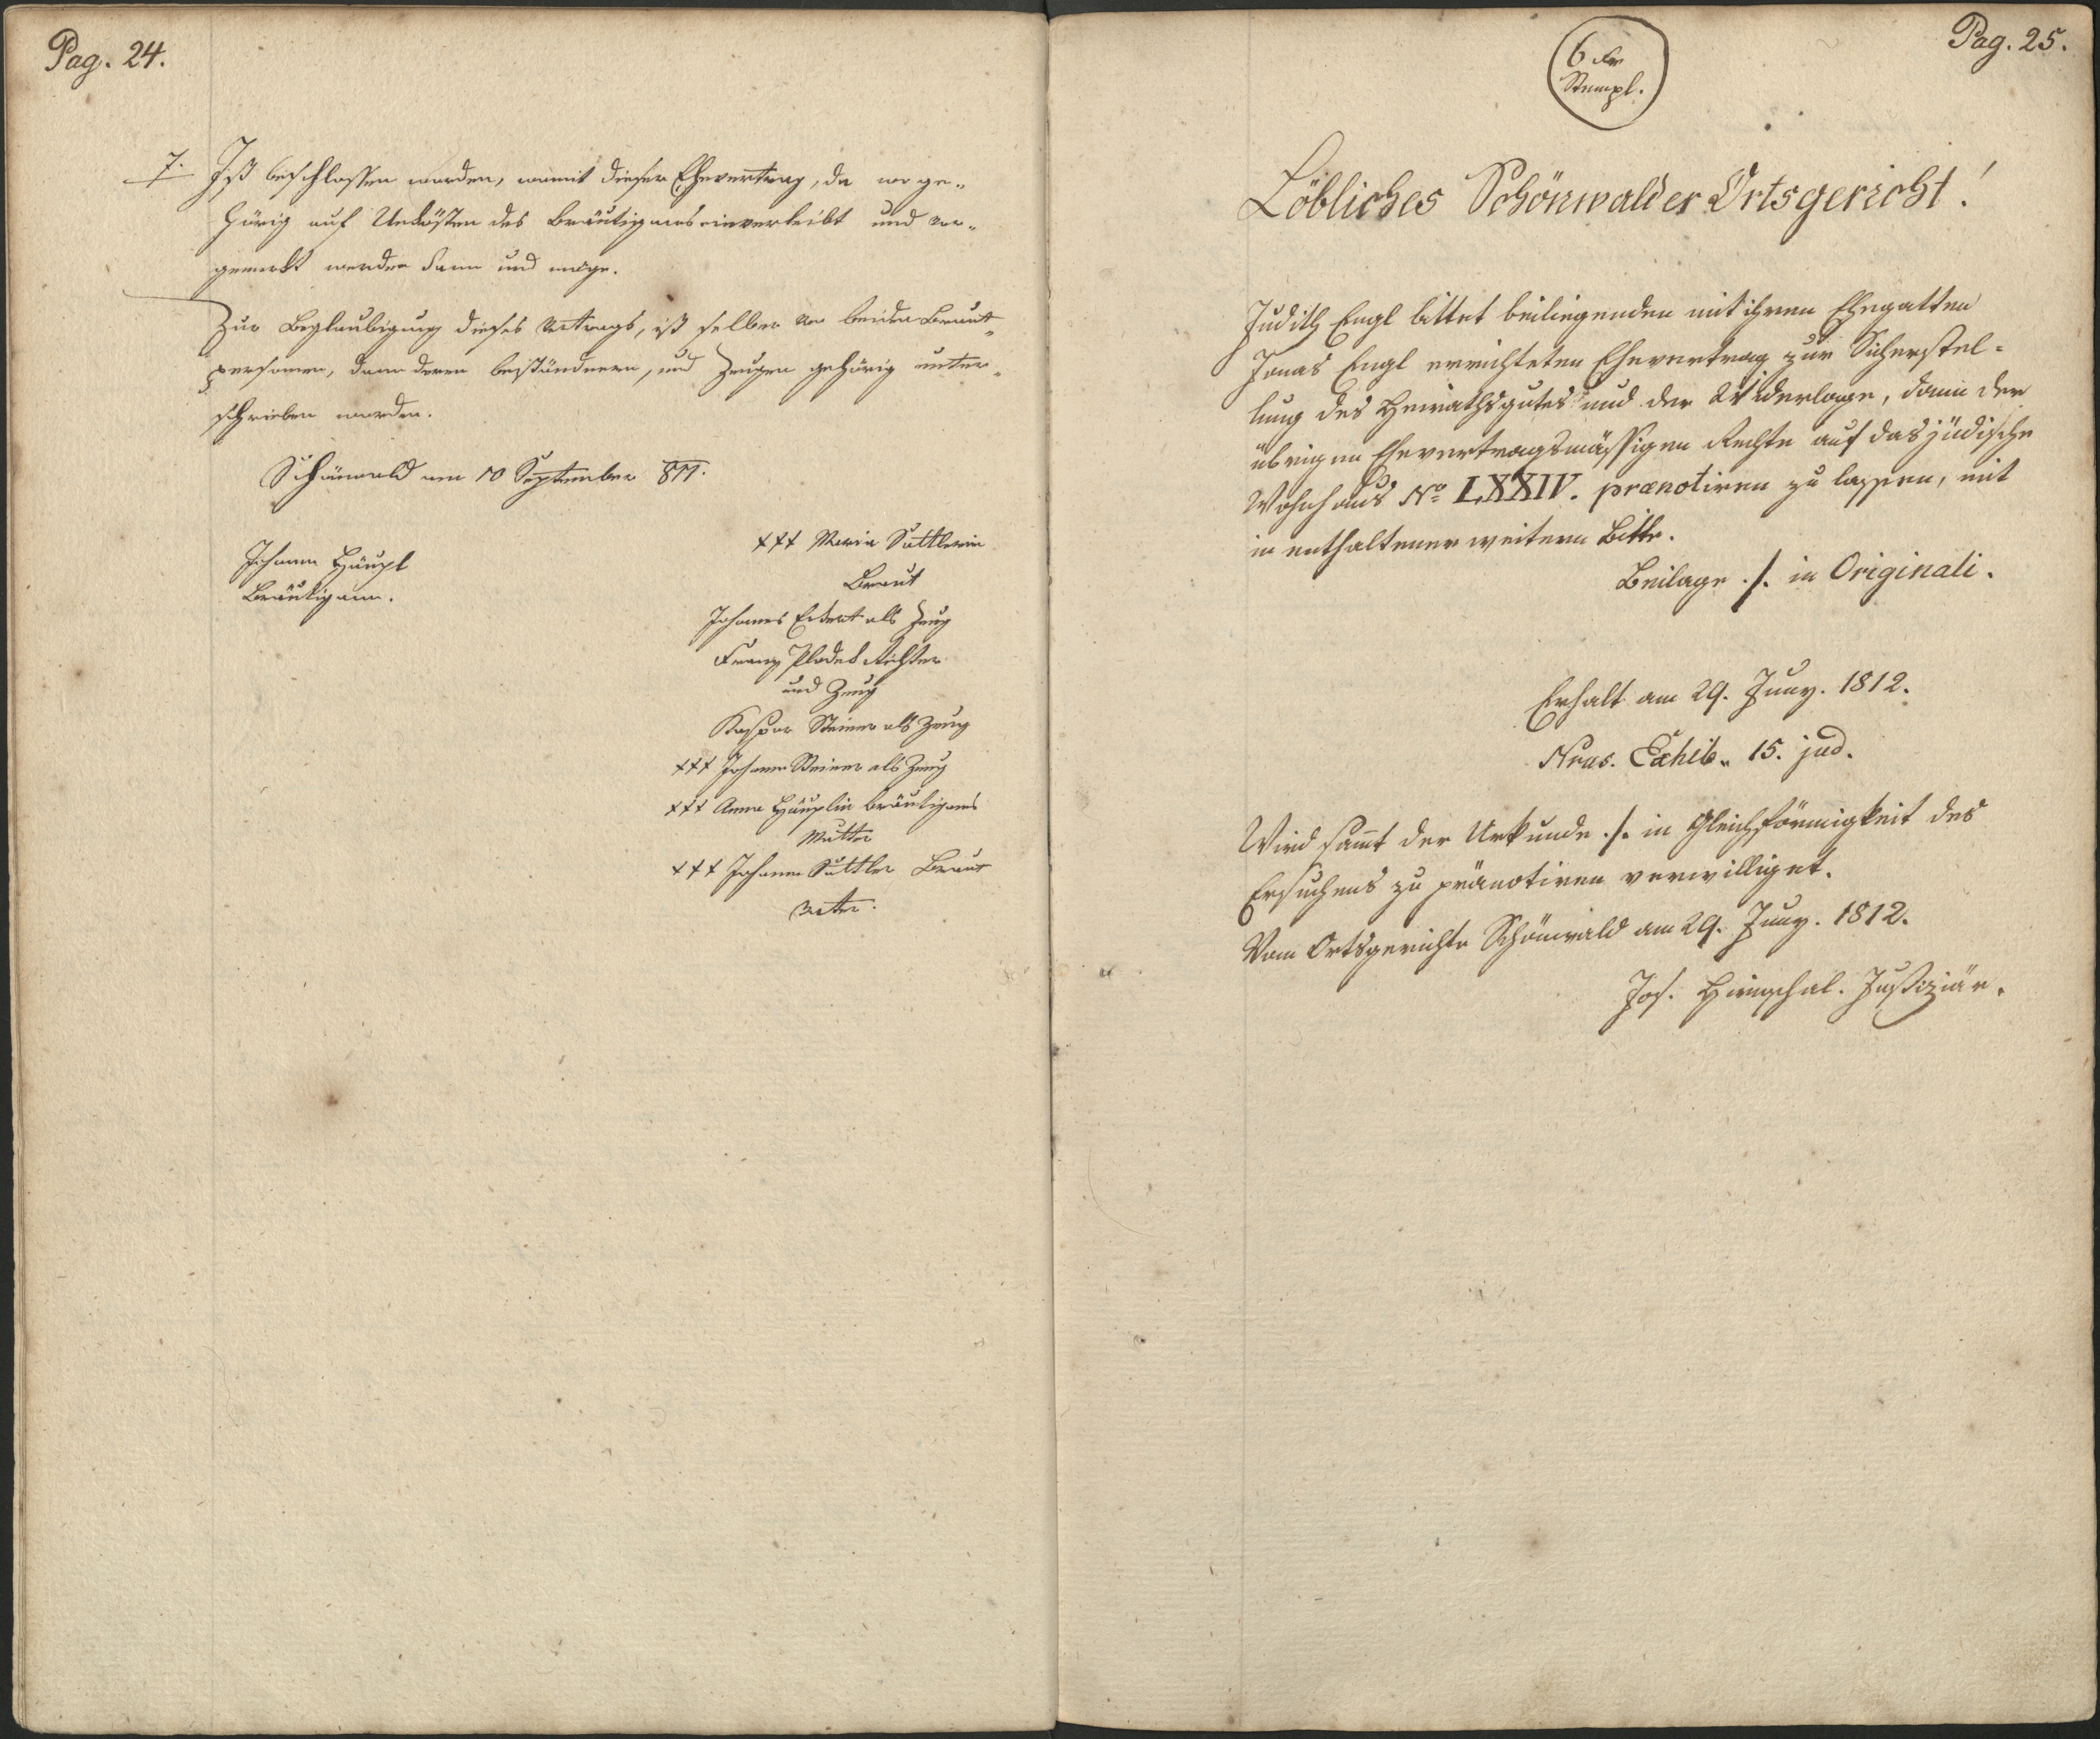 Pag. 24.
7. Ist beschlossen worden, womit dieser Ehevertrag, da wo ge-
hörig auf Unkösten des Bräutigams einverleibt und vor-
gemerkt werden kann und möge.
Zur Beglaubigung dieses Vertrags, ist selber von beiden Braut-
personen, dann deren beiständnern, und Zeugen gehörig unter-
schrieben worden.
Schönwald am 10 September 811.
Johann Häupl
Bräutigam.
+++ Maria Sattlerin
Braut
Johannes Eckert als Zeug
Franz Richter
und Zeug
Kaspar Steiner als Zeug
+++ Johann Steiner als Zeug
+++ Anna Häuplin bräutigams
Mutter
+++ Johann Sattler Braut
Vater.
Pag. 25.
6 kr
Stempl.
Löbliches Schönwalder Ortsgericht!
Judith Engl bittet beiliegenden mit ihrem Ehegatten
Jonas Engl errichteten Ehevertrag zur Sicherstel-
lung des Heirathsgutes und der Widerlage, dann der
übrigen Ehevertragsmässigen Rechte auf das jüdische
Wohnhaus No LXXIV. prænotiren zu lassen, mit
in enthaltener weitern Bitte.
Beilage ./. in Originali.
Erhalt am 29. Juny. 1812.
Nrus. Exhib. 15. jud.
Wird samt der Urkunde ./. in Gleichförmigkeit des
Ersuchens zu pränotiren verwilliget.
Vom Ortsgerichte Schönwald am 29. Juny. 1812.
Jos. Justiziär.